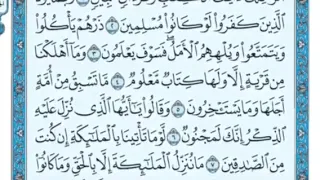 الَّذِينَ كَفَرُوا۟ لَوْ كَانُوا۟ مُسْلِمِينَ ۝٢ ذَرْهُمْ يَأْكُلُوا۟
وَيَتَمَتَّعُوا۟ وَيُلْهِهِمُ ٱلْأَمَلُ ۖ فَسَوْفَ يَعْلَمُونَ ۝٣ وَمَآ أَهْلَكْنَا
مِن قَرْيَةٍ إِلَّا وَلَهَا كِتَابٌ مَّعْلُومٌ ۝٤ مَّا تَسْبِقُ مِنْ أُمَّةٍ
أَجَلَهَا وَمَا يَسْتَـْٔخِرُونَ ۝٥ وَقَالُوا۟ يَـٰٓأَيُّهَا ٱلَّذِى نُزِّلَ عَلَيْهِ
ٱلذِّكْرُ إِنَّكَ لَمَجْنُونٌ ۝٦ لَّوْ مَا تَأْتِينَا بِٱلْمَلَـٰٓئِكَةِ إِن كُنتَ
مِنَ ٱلصَّـٰدِقِينَ ۝٧ مَا نُنَزِّلُ ٱلْمَلَـٰٓئِكَةَ إِلَّا بِٱلْحَقِّ وَمَا كَانُوٓا۟